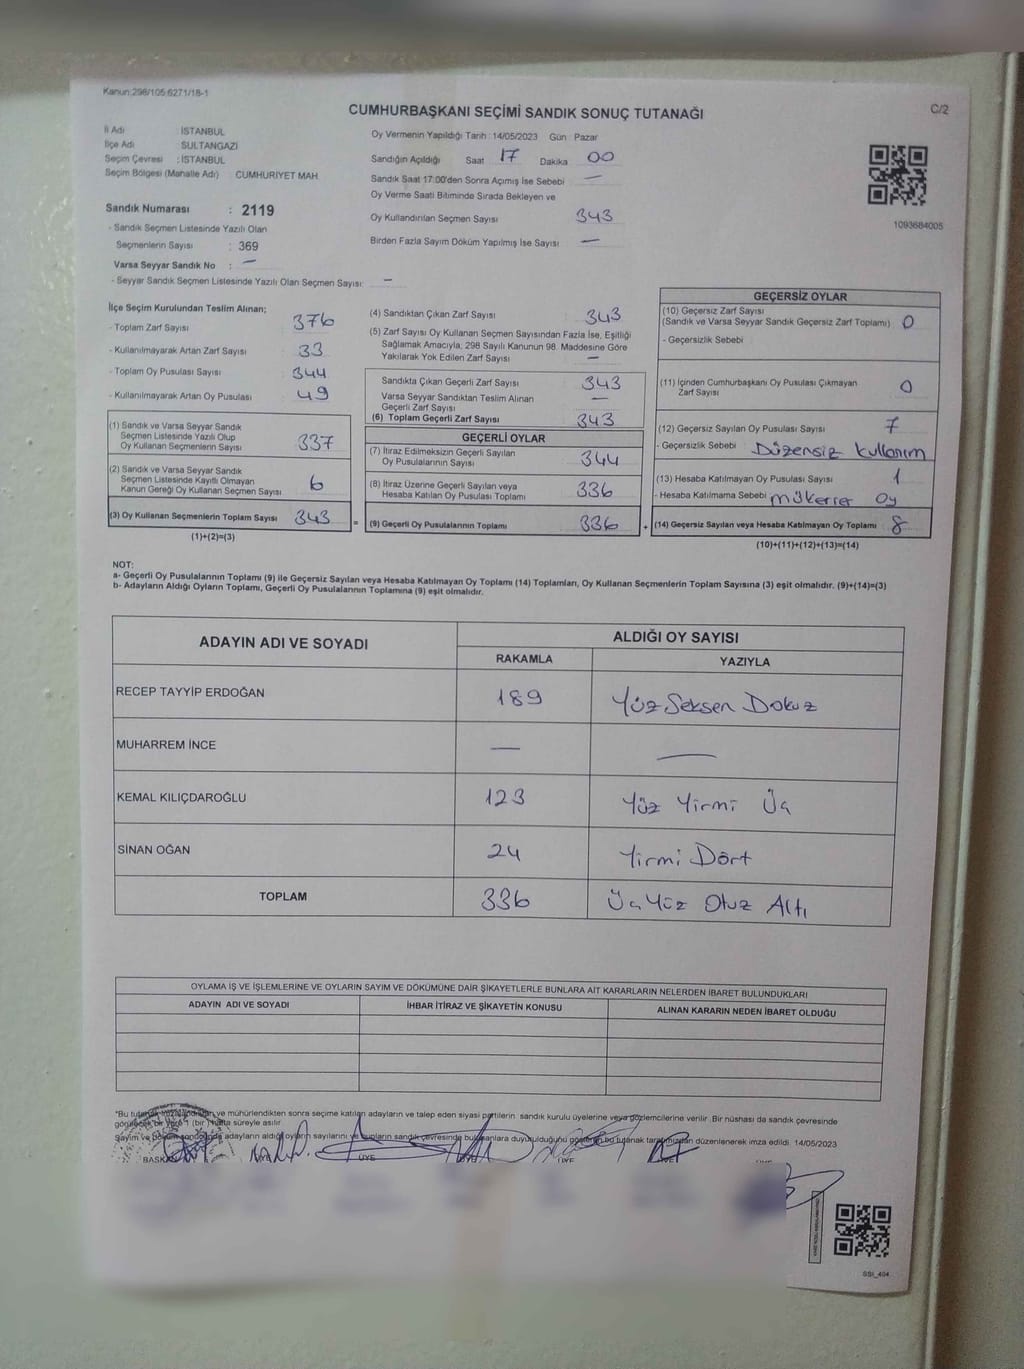 Kanun:298/105 6271/18-1
C/2
CUMHURBAŞKANI SEÇİMİ SANDIK SONUÇ TUTANAĞI
İl Adı : İSTANBUL
İlçe Adı : SULTANGAZİ
Seçim Çevresi : İSTANBUL
Seçim Bölgesi (Mahalle Adı) CUMHURİYET MAH.
Sandık Numarası : 2119
- Sandık Seçmen Listesinde Yazılı Olan
Seçmenlerin Sayısı : 369
Varsa Seyyar Sandık No : —
- Seyyar Sandık Seçmen Listesinde Yazılı Olan Seçmen Sayısı: —
Oy Vermenin Yapıldığı Tarih : 14/05/2023 Gün : Pazar
Sandığın Açıldığı Saat 17 Dakika 00
Sandık Saat 17:00'den Sonra Açımış İse Sebebi —
Oy Verme Saati Bitiminde Sırada Bekleyen ve
Oy Kullandırılan Seçmen Sayısı 343
Birden Fazla Sayım Döküm Yapılmış İse Sayısı —
1093684005
İlçe Seçim Kurulundan Teslim Alınan;
- Toplam Zarf Sayısı 376
- Kullanılmayarak Artan Zarf Sayısı 33
- Toplam Oy Pusulası Sayısı 344
- Kullanılmayarak Artan Oy Pusulası 49
(1) Sandık ve Varsa Seyyar Sandık
Seçmen Listesinde Yazılı Olup
Oy Kullanan Seçmenlerin Sayısı 337
(2) Sandık ve Varsa Seyyar Sandık
Seçmen Listesinde Kayıtlı Olmayan
Kanun Gereği Oy Kullanan Seçmen Sayısı 6
(3) Oy Kullanan Seçmenlerin Toplam Sayısı 343 =
(1)+(2)=(3)
(4) Sandıktan Çıkan Zarf Sayısı 343
(5) Zarf Sayısı Oy Kullanan Seçmen Sayısından Fazla İse, Eşitliği
Sağlamak Amacıyla, 298 Sayılı Kanunun 98. Maddesine Göre
Yakılarak Yok Edilen Zarf Sayısı —
Sandıkta Çıkan Geçerli Zarf Sayısı 343
Varsa Seyyar Sandıktan Teslim Alınan
Geçerli Zarf Sayısı —
(6) Toplam Geçerli Zarf Sayısı 343
GEÇERLİ OYLAR
(7) İtiraz Edilmeksizin Geçerli Sayılan
Oy Pusulalarının Sayısı 344
(8) İtiraz Üzerine Geçerli Sayılan veya
Hesaba Katılan Oy Pusulası Toplamı 336
(9) Geçerli Oy Pusulalarının Toplamı 336 +
GEÇERSİZ OYLAR
(10) Geçersiz Zarf Sayısı
(Sandık ve Varsa Seyyar Sandık Geçersiz Zarf Toplamı) 0
- Geçersizlik Sebebi
(11) İçinden Cumhurbaşkanı Oy Pusulası Çıkmayan
Zarf Sayısı 0
(12) Geçersiz Sayılan Oy Pusulası Sayısı 7
- Geçersizlik Sebebi Düzensiz kullanım
(13) Hesaba Katılmayan Oy Pusulası Sayısı 1
- Hesaba Katılmama Sebebi mükerrer oy
(14) Geçersiz Sayılan veya Hesaba Katılmayan Oy Toplamı 8
(10)+(11)+(12)+(13)=(14)
NOT:
a- Geçerli Oy Pusulalarının Toplamı (9) ile Geçersiz Sayılan veya Hesaba Katılmayan Oy Toplamı (14) Toplamları, Oy Kullanan Seçmenlerin Toplam Sayısına (3) eşit olmalıdır. (9)+(14)=(3)
b- Adayların Aldığı Oyların Toplamı, Geçerli Oy Pusulalarının Toplamına (9) eşit olmalıdır.
ADAYIN ADI VE SOYADI ALDIĞI OY SAYISI
RAKAMLA YAZIYLA
RECEP TAYYİP ERDOĞAN 189 Yüz Seksen Dokuz
MUHARREM İNCE — —
KEMAL KILIÇDAROĞLU 123 Yüz Yirmi Üç
SİNAN OĞAN 24 Yirmi Dört
TOPLAM 336 Üç Yüz Otuz Altı
OYLAMA İŞ VE İŞLEMLERİNE VE OYLARIN SAYIM VE DÖKÜMÜNE DAİR ŞİKAYETLERLE BUNLARA AİT KARARLARIN NELERDEN İBARET BULUNDUKLARI
ADAYIN ADI VE SOYADI İHBAR İTİRAZ VE ŞİKAYETİN KONUSU ALINAN KARARIN NEDEN İBARET OLDUĞU
*Bu tutanak ve mühürlendikten sonra seçime katılan adayların ve talep eden siyasi partilerin sandık kurulu üyelerine veya gözlemcilerine verilir. Bir nüshası da sandık çevresinde
görülecek bir yere 1 (bir) hafta süreyle asılır.
Sayım ve sonucunda adayların aldığı oyların sayılarını ve bunların sandık çevresinde bulunanlara duyurulduğunu gösteren bu tutanak tarafımızdan düzenlenerek imza edildi. 14/05/2023
BAŞKAN ÜYE ÜYE ÜYE ÜYE ÜYE
SSI_404